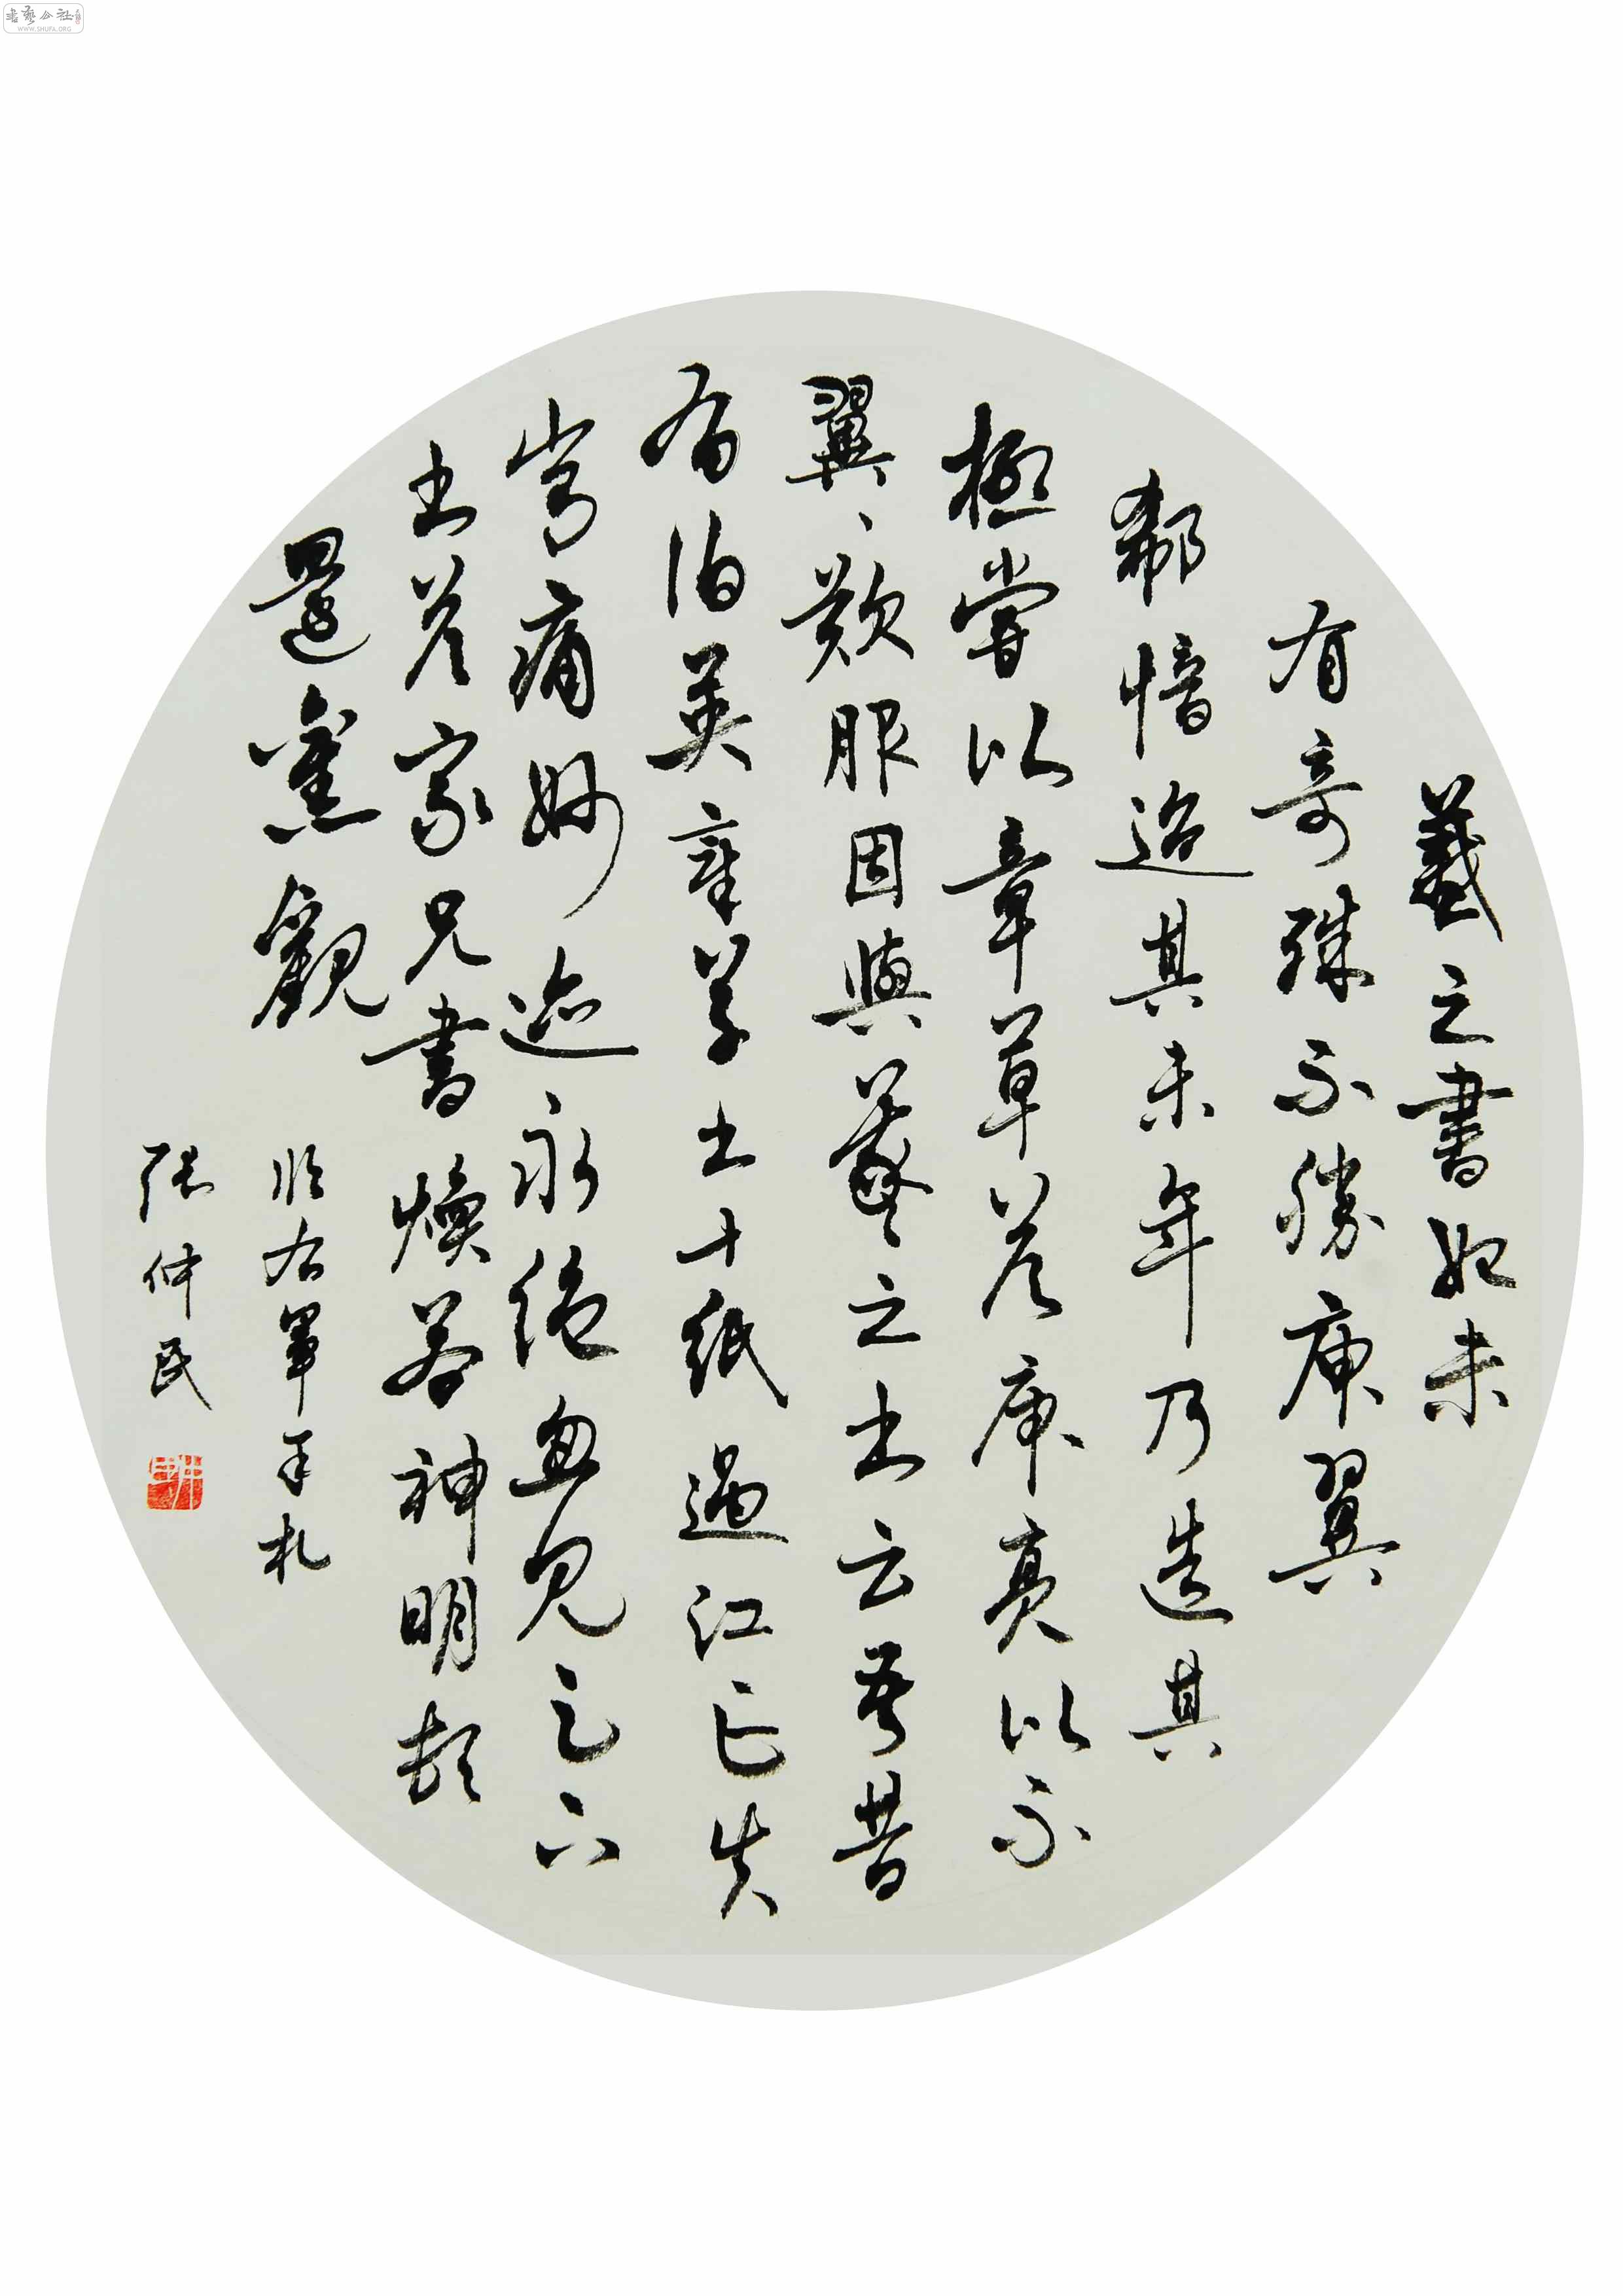 書藝公社
WWW.SHUFA.ORG
羲之書始未
有奇殊不勝庾翼
郗愔迨其末年乃造其
極嘗以章草答庾亮以示
翼、歎服因與羲之書云吾昔
有伯英章草書十紙過江亡失
常痛妙迹永絕忽見足下
書答家兄書煥若神明頓
還舊觀
臨右軍手札
張仲民